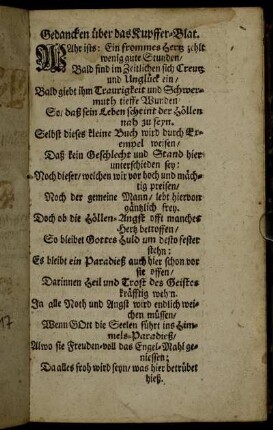 Gedancken über das Kupffer-Blat.
WAhr ists: Ein frommes Hertz zehlt
wenig gute Stunden/
Bald find im Zeitlichen sich Creutz
und Unglück ein/
Bald giebt ihm Traurigkeit und Schwer-
muth tieffe Wunden/
So/ daß sein Leben scheint der Höllen
nah zu seyn.
Selbst dieses kleine Buch wird durch Ex-
empel weisen/
Daß kein Geschlecht und Stand hier
unterschieden sey:
Noch dieser/ welchen wir vor hoch und mäch-
tig preisen/
Noch der gemeine Mann/ lebt hiervon
gäntzlich frey.
Doch ob die Höllen-Angst offt manches
Hertz betroffen/
So bleibet Gottes Huld um desto fester
stehn:
Es bleibt ein Paradieß auch hier schon vor
sie offen/
Darinnen Heil und Trost des Geistes
kräfftig weh'n.
Ja alle Noth und Angst wird endlich wei-
chen müssen/
Wenn GOtt die Seelen führt ins Him-
mels-Paradieß/
Alwo sie Freuden-voll das Engel-Mahl ge-
niessen;
Da alles froh wird seyn/ was hier betrübet
hieß.
17